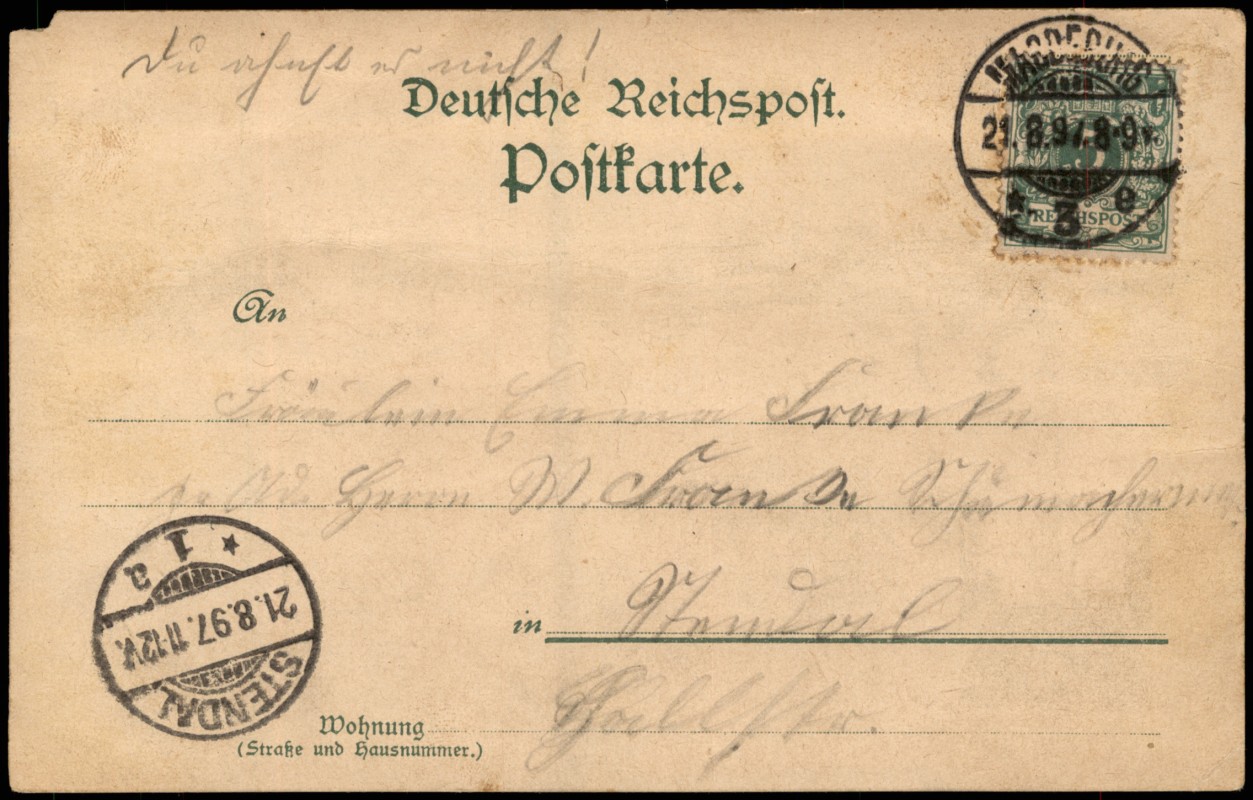 Du ahnst es nicht!
Deutsche Reichspost.
Postkarte.
MAGDEBURG
21.8.97.8-9V.
* 3 e
REICHSPOST
An
Fräulein Emma Franke
Herrn W. Franke
in Stendal
Wohnung
(Straße und Hausnummer.)
Hallstr.
STENDAL
21.8.97.11-12V.
* 1 a